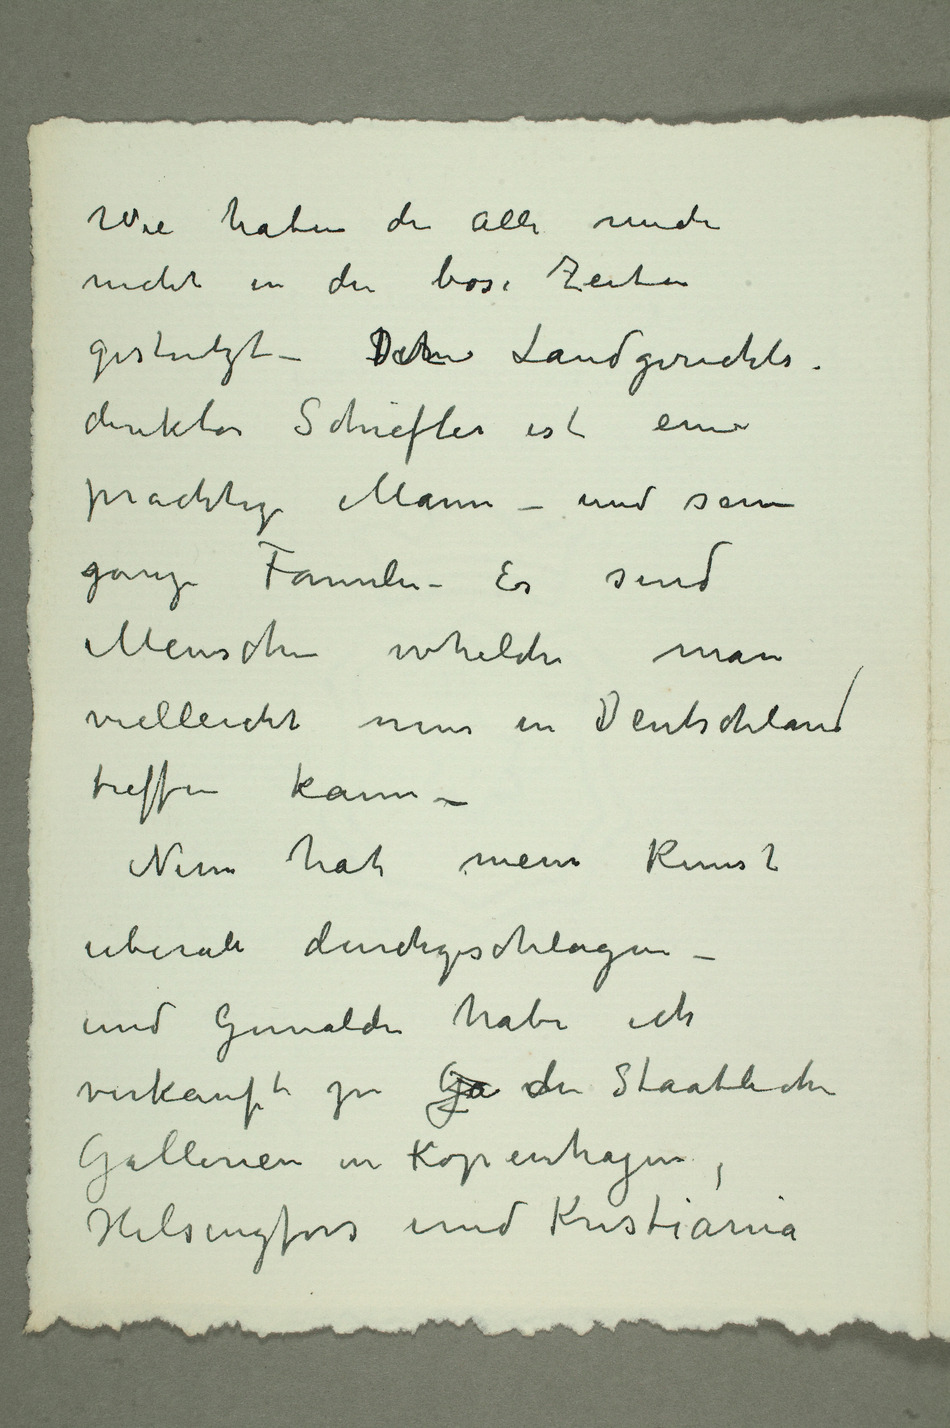 Wie haben die alle mich
nicht in die böse Zeiten
gestützt – Der Landgerichts-
direktor Schiefler ist ein
prächtige Mann – und sein
ganze Familie – Es sind
Menschen whelche man
vielleicht nur in Deutschland
treffen kann –
Nun hat mein Kunst
überall durchgeschlagen –
und Gemälde habe ich
verkauft zu Ga die Staatliche
Gallerien in Kopenhagen,
Helsingfors und Kristiania